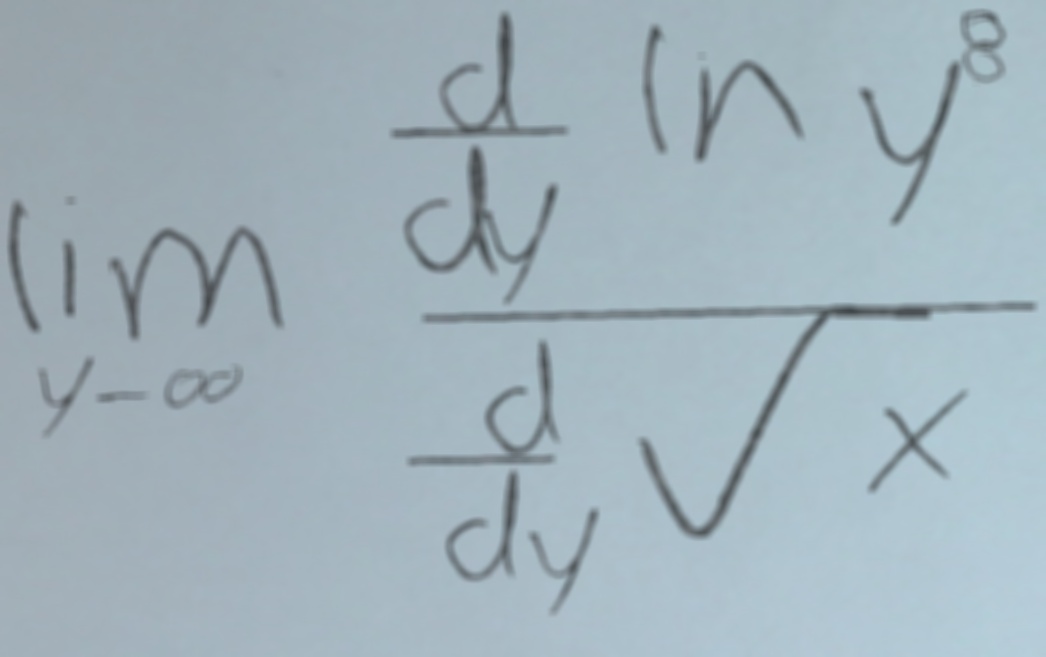 \lim_{y - \infty} \frac{\frac{d}{dy} \ln y^8}{\frac{d}{dy} \sqrt{x}}